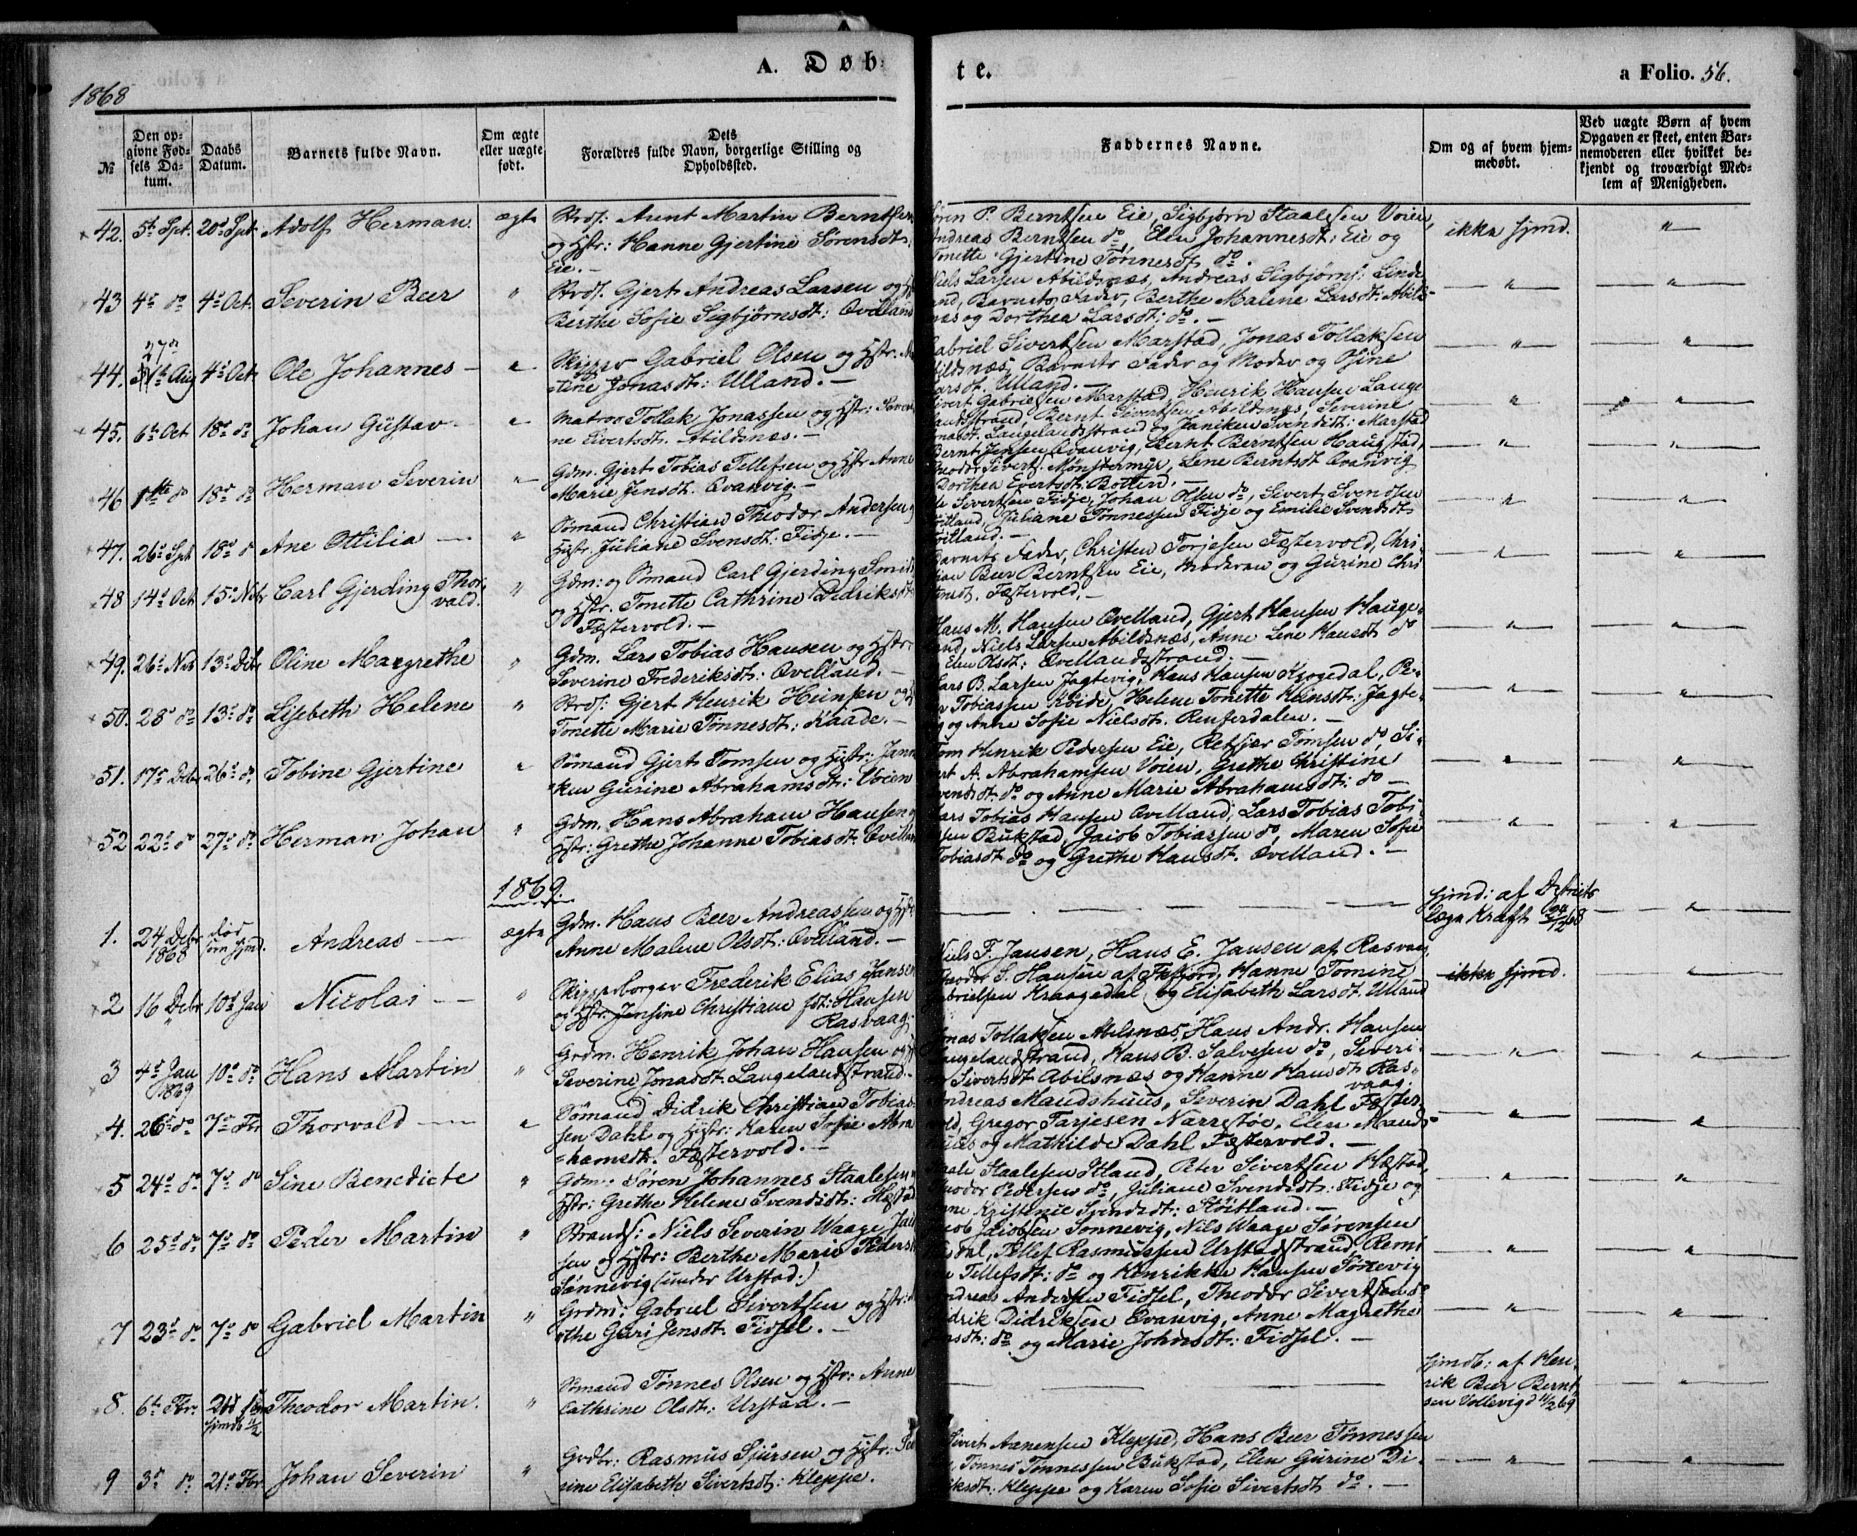 1868
A. Døb
te.
a Folio. 56.
№
Den op-
givne Fød-
sels Da-
tum.
Daabs
Datum.
Barnets fulde Navn.
Om ægte
eller uægte
født.
Dets
Forældres fulde Navn, borgerlige Stilling og
Opholdssted.
Faddernes Navne.
Om og af hvem hjem-
medøbt.
Ved uægte Børn af hvem
Opgaven er skeet, enten Bar-
nemoderen eller hvilket be-
kjendt og troværdigt Med-
lem af Menigheden.
42. 5t Spt. 20d Spt. Adolf Herman. ægte
Arnt Martin Berntsen
og Hstr: Hanne Gjertine Sørensdt:
Eie. —
Søren P. Berntsen Eie, Sigbjørn Staalesen Voien
Andreas Berntsen do, Elen Johannesdt: Eie og
Tonette Gjertine Tønnesdt do.
ikke hjmd. "
43 4d do 4d Oct. Severin Beer "
Gjert Andreas Larsen og
Berthe Sofie Sigbjørnsdt: Ovelland
Niels Larsen Abildsnæs, Andreas Sigbjørns: Linde
land, Barnets Fader, Berthe Malene Larsdt: Abild-
næs og Dorthea Larsdt: do. —
44. 27d Aug 4d Oct. Ole Johannes —
Skipper Gabriel Olsen og Hstr:
tine Jonasdt: Ulland. —
Gabriel Sivertsen Marstad, Jonas Tollaksen
Abildsnæs, Barnets Fader og Moder og Sine
Larsdt. Ulland. —
45. 6t Oct 18d do Johan Gustav —
Matros Tollak Jonassen og Hstr: Severi
ne Sivertsdt. Abildsnæs. —
Sivert Gabrielsen Marstad, Henrik Hansen Lange
landsstrand, Bernt Sivertsen Abildsnæs, Severine
Jonasdt. Langelandsstrand og Janiken Svendsdt: Marstad
46 do 18d do Herman Severin
Gdm. Gjert Tobias Tellefsen og Hstr Anne
Marie Jensdt. Qvanvig. —
Bernt Jensen Qvanvig, Bernt Berntsen Haugstad,
Theodor Siverts. Mønstermyr, Lene Berntsdt Qvanvig
Dorthea Evertsdt: Botten. —
47. 26d Spt 18d do Ane Ottilia — "
Sømand Christian Theodor Andersen
Hstr. Juliane Svensdt: Fidje. —
Ole Sivertsen Fidje, Johan Olsen do, Sivert Svendsen
Støitland, Juliane Tønnessen Fidje og Emilie Svendsdt
Støitland. —
48 14d Oct 15d Nvbr Carl Gjerding Thor-
vald. "
Gdm: og Sømand Carl Gjerding Smidt
og Hstr. Tonette Cathrine Didriksdt
Fæstervold. —
Barnets Fader, Christen Torjesen Fæstervold, Chri-
stian Beer Berntsen Eie, Moderen og Gurine Chri
stensdt. Fæstervold. —
49. 26d Nvb 13d Dcbr Oline Margrethe "
Gdm. Lars Tobias Hansen og Hstr:
Severine Frederiksdt: Ovelland. —
Hans M. Hansen Ovelland, Gjert Hansen Hauge-
land, Niels Larsen Abildsnæs, Anne Lene Hansdt do
Elen Olsdt: Ovellandsstrand. —
50. 28d do 13d do Lisebeth Helene "
Gjert Henrik Heinsen og
Tonette Marie Tønnesdt: Raade. —
Lars B. Larsen Jagtevig, Hans Hansen Kragedal, Pe-
der Tobiassen Røide, Helene Tonette Heinsdt: Jagte-
vig og Anne Sofie Nielsdt. Renferdalen. —
51. 17d Debr 26d do Tobine Gjertine
Sømand Gjert Tomsen og Hstr: Jann
iken Gurine Abrahamsdt: Voien
Tom Henrik Pedersen Eie, Retsjer Tomsen do, Si-
vert A. Abrahamsen Voien, Grethe Christine
Svendsdt: do og Anne Marie Abrahamsdt: do —
52 22d do 27d do Herman Johan "
Gdm. Hans Abraham Hansen
Hstr: Grethe Johanne Tobiasdt. Ovelland
Lars Tobias Hansen Ovelland, Lars Tobias Tobi-
assen Bukstad, Jacob Tobiassen do, Maren Sofie
Tobiasdt do og Grethe Hansdt. Ovelland. —
1869.
1. 24 Debr
1868 død
hjmd. Andreas — ægte
Gdm. Hans Beer Andreassen og
Anne Malene Olsdt: Ovelland. —
hjmd: af Distrikts
læge Kraft 24/12 68
2 16 Debr 10d Jan Nicolai — "
Skipperborger Frederik Elias Jansen
og Hstr. Jensine Christiane fdt: Hansen
Rasvaag.
Niels F. Jansen, Hans E. Jansen af Rasvaag
Theodor S. Hansen af Fefjord, Hanne Tomine
Gabrielsen Kraagedal og Elisabeth Larsdt Ulland
ikke hjmd.
3 4d Jan
1869 10d do Hans Martin "
Grdm. Henrik Johan Hansen og
Severine Jonasdt. Langelandsstrand.
Jonas Tollaksen Abilsnæs, Hans Andr. Hansen
Langelandstrand, Hans B. Salvesen do, Severi-
ne Sivertsdt Abilsnæs og Hanne Hansdt Ras-
vaag.
4. 26d do 7d Fbr Thorvald —
Sømand Didrik Christian Tobias-
sen Dahl og Hstr: Karen Sofie Abra
hamsdt. Fæstervold. —
Andreas Maudshuus, Severin Dahl Fæster
vold, Gregor Tarjesen Narrestøe, Elen Mauds
huus og Mathilde Dahl Fæstervold. —
5 24d do 7d do Sine Benedicte "
Gdm: Søren Johannes Staalesen
Hstr: Grethe Helene Svendsdt: Hæstad
Staale Staalesen Itland, Peter Sivertsen Hæstad,
Theodor Pedersen do, Juliane Svendsdt: Fidje og
Anne Kristenie Svendsdt: Støitland. —
6 25d do 7d do Peder Martin "
Strands: Niels Severin Waage Jacob
sen og Hstr: Berthe Marie Peders
Sønnevig (under Urstad.)
Jacob Jacobsen Sønnevig, Nils Waage Sørensen
Tellef Rasmussen Urstadstrand,
Tellefsdt: do og Henrikke Hansen Tørtevig
7 23d do 7d do Gabriel Martin "
Grdm: Gabriel Sivertsen og Hstr:
Guri Jensdt. Fidsel. —
Andreas Andersen Fidsel, Theodor Sivertsen do
Didrik Didriksen Qvanvig, Anne Magrethe
Jensdt: do og Marie Johnsdt: Fidsel. —
8. 6t Fbr. Theodor Martin. "
Sømand Tønnes Olsen og Hstr: Anne
Cathrine Olsdt: Urstad. —
hjmdb: af Hen-
rik Beer Bernt
sen Vollevig d 11/2 69
9 3d do 21d Fbr Johan Severin "
Grdbr: Rasmus Sjursen og Hstr: Se
rine Elisabeth Sivertsdt: Kleppe.
Sivert Aanensen Kleppe, Hans Beer Tønnessen
Tønnes Tønnessen Bukstad, Elen Gurine Di-
driksdt: Kleppe og Karen Sofie Sivertsdt do. —